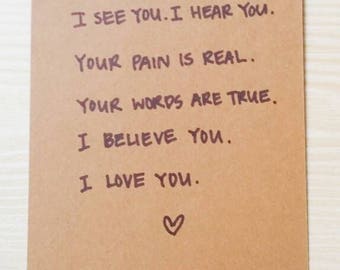 I SEE YOU. I HEAR YOU.
YOUR PAIN IS REAL.
YOUR WORDS ARE TRUE.
I BELIEVE YOU.
I LOVE YOU.